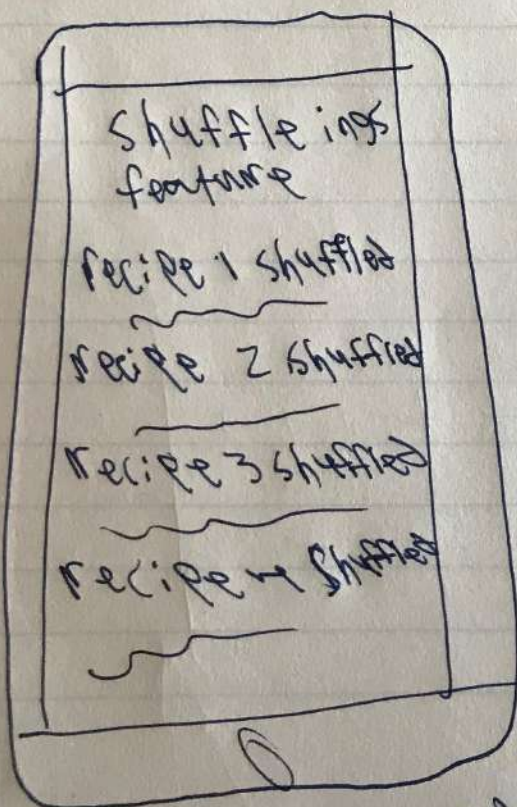 shuffle ings
feature
recipe 1 shuffled
recipe 2 shuffled
recipe 3 shuffled
recipe shuffled